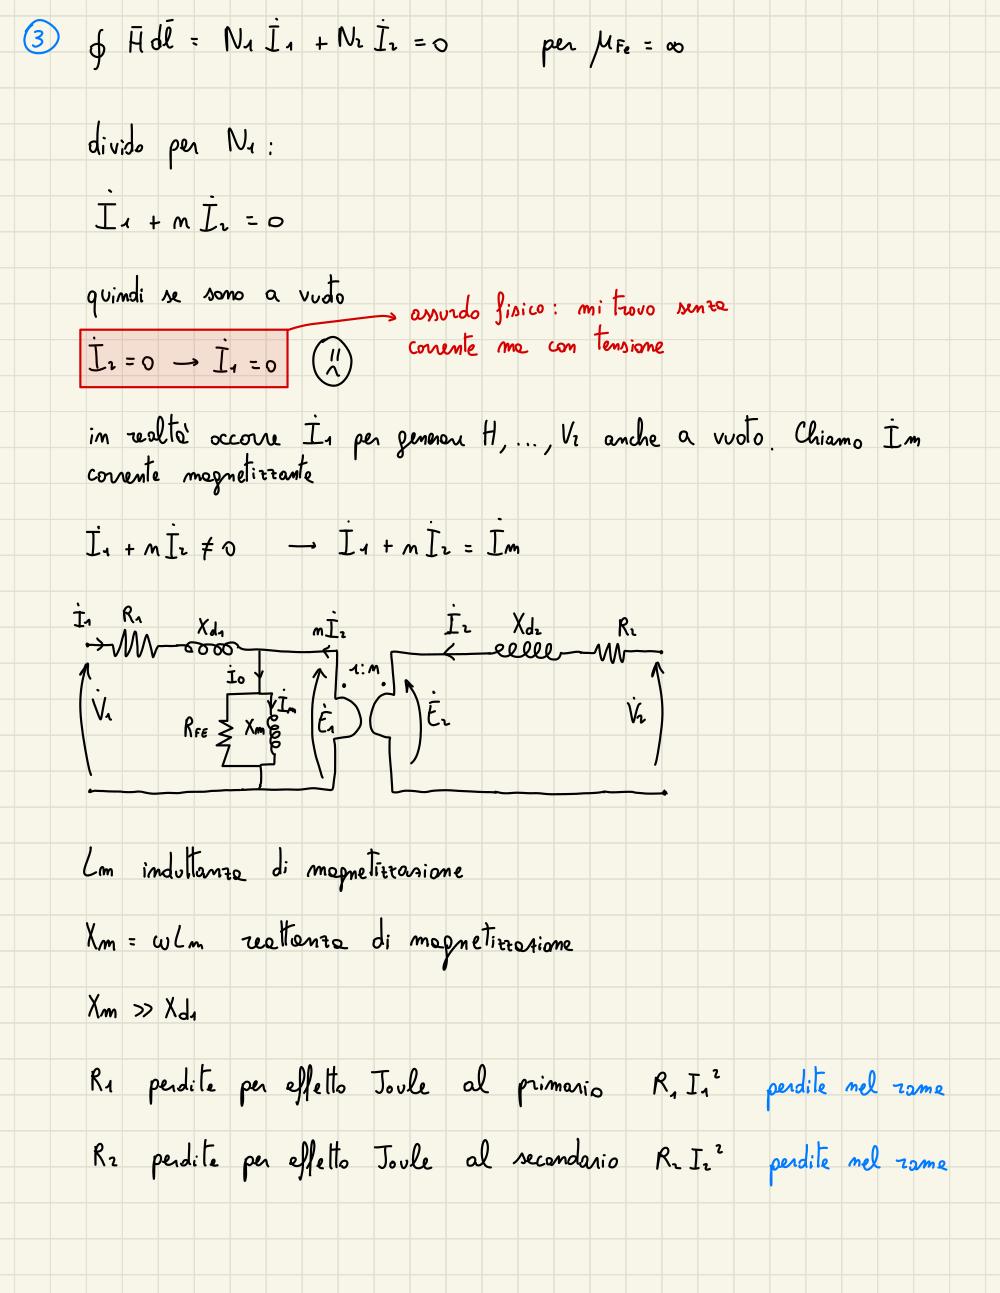 ③ ∮ H̄ dl̄ = N₁ İ₁ + N₂ İ₂ = 0 per μFe = ∞
divido per N₁ :
İ₁ + n İ₂ = 0
quindi se sono a vuoto
assurdo fisico : mi trovo senza
corrente ma con tensione
İ₂ = 0 → İ₁ = 0
in realtà occorre İ₁ per generare H, ..., V₂ anche a vuoto. Chiamo İm
corrente magnetizzante
İ₁ + n İ₂ ≠ 0 → İ₁ + n İ₂ = İm
İ₁ R₁ Xd₁ nİ₂ İ₂ Xd₂ R₂
İ₀ 1:n
V̇₁ RFE Xm İm Ė₁ Ė₂ V̇₂
Lm induttanza di magnetizzazione
Xm = ωLm reattanza di magnetizzazione
Xm >> Xd₁
R₁ perdite per effetto Joule al primario R₁ I₁² perdite nel rame
R₂ perdite per effetto Joule al secondario R₂ I₂² perdite nel rame